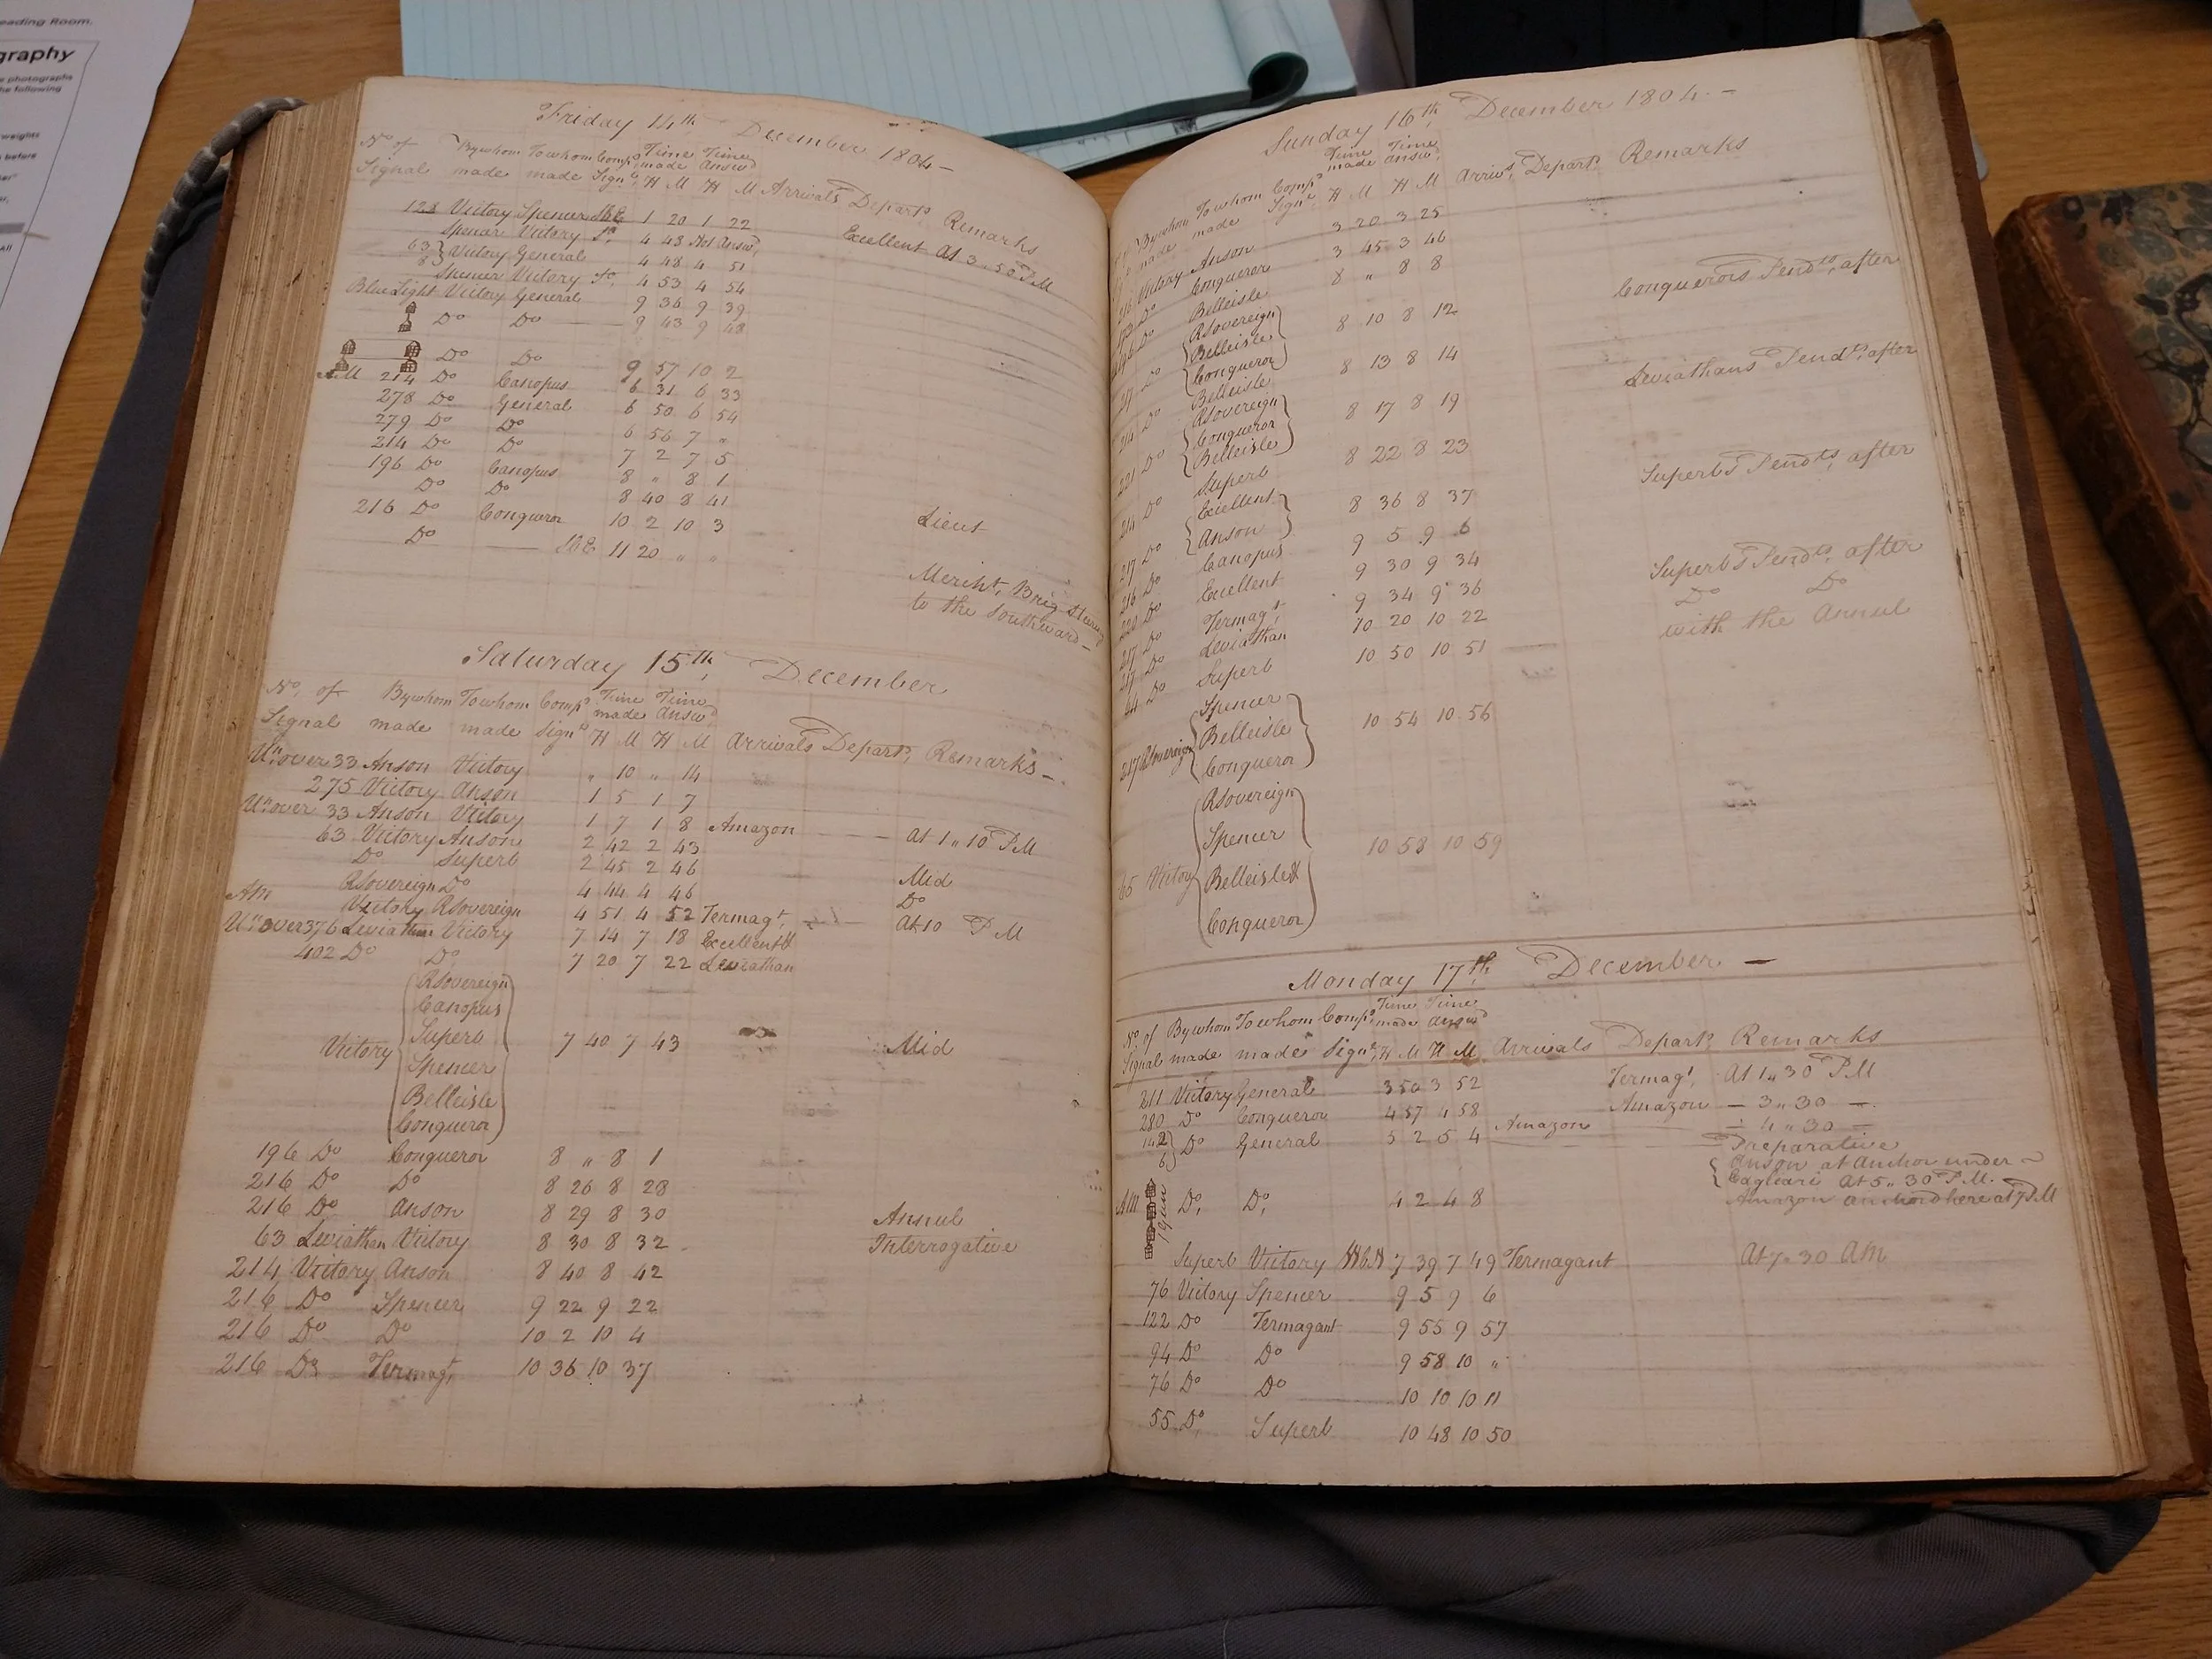 eading Room.
graphy
e photographs
he following
weights
before
All
Friday 14th December 1804 —
No of Bywhom Towhom Comps Time Time
Signal made made Signl made Answd
H M H M Arrivals Depart Remarks
123 Victory Spencer SbE 1 20 1 22
Excellent At 3..50 PM
Spencer Victory Do 4 48 Not Answd
63 8 } Victory General 4 48 4 51
Spencer Victory Do 4 53 4 54
Blue Light Victory General 9 36 9 39
Do Do 9 43 9 48
Do Do 9 57 10 2
AM 214 Do Canopus 6 31 6 33
278 Do General 6 50 6 54
279 Do Do 6 56 7 "
214 Do Do 7 2 7 5
196 Do Canopus 8 " 8 1
Do Do 8 40 8 41
216 Do Conqueror 10 2 10 3 Lieut
Do SbE 11 20 " "
Mercht, Brig
to the Southward —
Saturday 15th, December
No, of Bywhom Towhom Comps Time Time
Signal made made Signl made Answd
H M H M Arrivals Depart, Remarks —
Un over 33 Anson Victory " 10 " 14
275 Victory Anson 1 5 1 7
Un over 33 Anson Victory 1 7 1 8 Amazon — At 1,, 10 PM
63 Victory Anson 2 42 2 43
Do Superb 2 45 2 46 Mid
RSovereign Do 4 44 4 46 Do
Am Victory RSovereign 4 51 4 52 Termagt, — At 10 PM
Un over 376 Leviathan Victory 7 14 7 18 Excellent &
402 Do Do 7 20 7 22 Leviathan
RSovereign
Canopus
Superb
Victory 7 40 7 43 Mid
Spencer
Belleisle
Conqueror
196 Do Conqueror 8 " 8 1
216 Do Do 8 26 8 28
216 Do Anson 8 29 8 30 Annul
63 Leviathan Victory 8 30 8 32 Interrogative
214 Victory Anson 8 40 8 42
216 Do Spencer 9 22 9 22
216 Do Do 10 2 10 4
216 Do Termagt, 10 36 10 37
Sunday 16th, December 1804. —
Bywhom Towhom Comps Time Time
made made Signl made Answd,
H M H M Arrivs, Depart Remarks
Victory Anson 3 20 3 25
Do Conqueror 3 45 3 46
Do Belleisle 8 " 8 8
RSovereign
Do Belleisle 8 10 8 12 Conquerors Pendts, after
Conqueror
Do Belleisle 8 13 8 14
RSovereign
221 Do Conqueror 8 17 8 19 Leviathans Pendts, after
Belleisle
214 Do Superb 8 22 8 23
217 Do Excellent 8 36 8 37 Superbs Pendts, after
Anson
216 Do Canopus 9 5 9 6
220 Do Excellent 9 30 9 34
217 Do Termagt, 9 34 9 36 Superbs Pendts, after
217 Do Leviathan 10 20 10 22 Do Do
64 Do Superb 10 50 10 51 with the Annul
Spencer
217 RSovereign Belleisle 10 54 10 56
Conqueror
RSovereign
Spencer
65 Victory Belleisle & 10 58 10 59
Conqueror
Monday 17th, December —
No of Bywhom Towhom Comps Time Time
Signal made made Signl, made Answd
H M H M Arrivals Depart Remarks
211 Victory General 3 50 3 52 Termagt, At 1,, 30 PM
280 Do Conqueror 4 57 4 58 Amazon — 3,, 30 —
142 6 } Do General 5 2 5 4 Amazon — 4,, 30 —
Preparative
Anson at Anchor under
Cagliari At 5,, 30 PM.
Amazon anchord here at 7 PM
AM 1 gun Do, Do, 4 2 4 8
Superb Victory NNbN 7 39 7 49 Termagant At 7. 30 AM
76 Victory Spencer 9 5 9 6
122 Do Termagant 9 55 9 57
94 Do Do 9 58 10 "
76 Do Do 10 10 10 11
55 Do, Superb 10 48 10 50